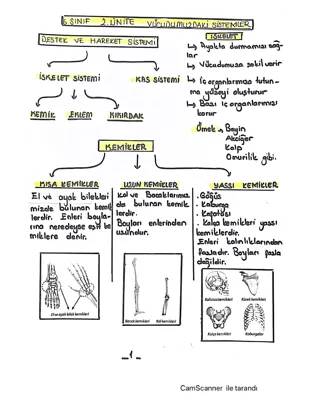 6. SINIF 2. ÜNİTE VÜCUDUMUZDAKİ SİSTEMLER
DESTEK VE HAREKET SİSTEMİ
İSKELET
↳ Ayakta durmamızı sağlar
↳ Vücudumuza şekil verir
↳ İç organlarımıza tutunma yüzeyi oluşturur
↳ Bazı iç organlarımızı korur
Örnek → Beyin
Akciğer
Kalp
Omurilik gibi.
İSKELET SİSTEMİ
KAS SİSTEMİ
KEMİK
EKLEM
KIKIRDAK
KEMİKLER
KISA KEMİKLER
El ve ayak bilekleri
mizde bulunan kemik
lerdir. Enleri boyla-
rına neredeyse eşit ke
miklere denir.
El ve ayak bileği kemikleri
UZUN KEMİKLER
Kol ve Bacaklarımız
da bulunan kemik
lerdir.
Boyları enlerinden
uzundur.
Bacak kemikleri
Kol kemikleri
YASSI KEMİKLER
• Göğüs
• Kaburga
• Kafatası
• Kalça kemikleri yassı
kemiklerdir.
Enleri kalınlıklarından
fazladır. Boyları fazla
değildir.
Kafatası kemikleri
Kürek kemikleri
Kalça kemikleri
Kaburgalar
_1_
CamScanner ile tarandı